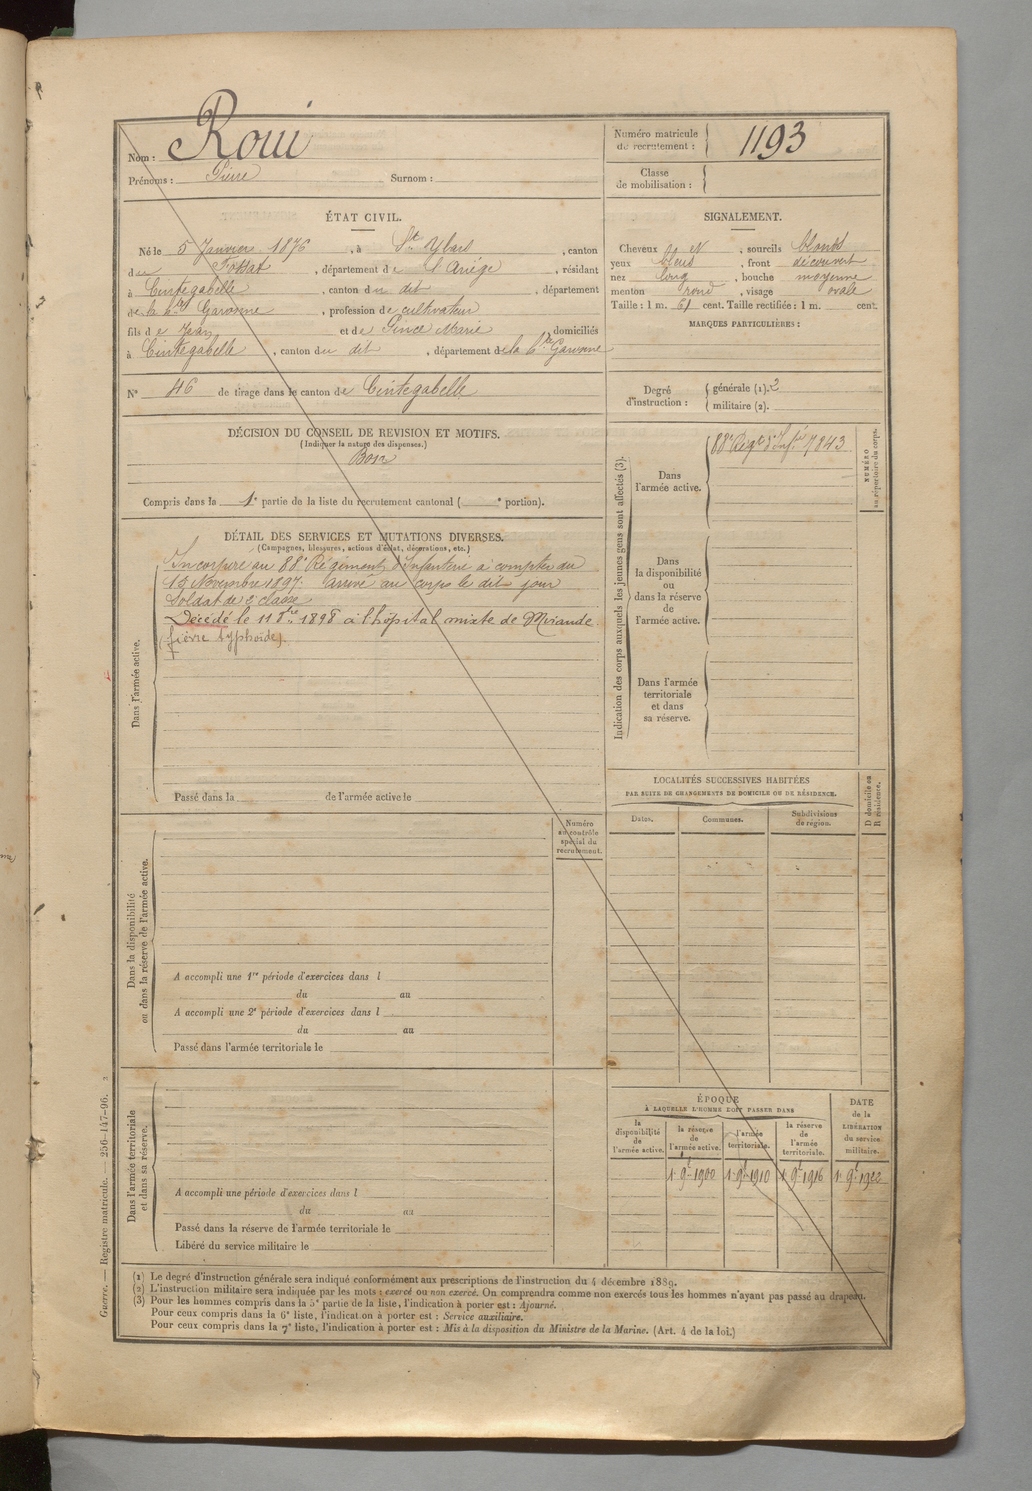 Nom : Roui
Prénoms : Pierre Surnom :
Numéro matricule de recrutement : 1193
Classe de mobilisation :
ÉTAT CIVIL.
Né le 5 Janvier 1876, à St Ybars, canton
du Fossat, département de l'Ariège, résidant
à Cintegabelle, canton du dit, département
de la Hte Garonne, profession de cultivateur
fils de Jean et de Since Marie, domiciliés
à Cintegabelle, canton du dit, département de la Hte Garonne
N° 46 de tirage dans le canton de Cintegabelle
SIGNALEMENT.
Cheveux bl N, sourcils blonds
yeux bleus, front découvert
nez long, bouche moyenne
menton rond, visage ovale
Taille : 1 m. 61 cent. Taille rectifiée : 1 m. cent.
MARQUES PARTICULIÈRES :
Degré d'instruction : générale (1). 2
militaire (2).
DÉCISION DU CONSEIL DE REVISION ET MOTIFS.
(Indiquer la nature des dispenses.)
Bon
Compris dans la 1e partie de la liste du recrutement cantonal ( e portion).
DÉTAIL DES SERVICES ET MUTATIONS DIVERSES.
(Campagnes, blessures, actions d'éclat, décorations, etc.)
Dans l'armée active.
Incorporé au 88e Régiment d'Infanterie à compter du
Novembre 1897. Arrivé au corps le dit jour
Soldat de 2e classe
Décédé le 11 8bre 1898 à l'hôpital mixte de Mirande
(fièvre typhoïde)
Passé dans la de l'armée active le
Indication des corps auxquels les jeunes gens sont affectés (3).
NUMÉRO au répertoire du corps.
Dans l'armée active. 88e Régt d'Infie 7843
Dans la disponibilité ou dans la réserve de l'armée active.
Dans l'armée territoriale et dans sa réserve.
LOCALITÉS SUCCESSIVES HABITÉES
PAR SUITE DE CHANGEMENTS DE DOMICILE OU DE RÉSIDENCE.
Dates. Communes. Subdivisions de région. D domicile ou R résidence.
Numéro au contrôle spécial du recrutement.
Dans la disponibilité ou dans la réserve de l'armée active.
A accompli une 1re période d'exercices dans l
du au
A accompli une 2e période d'exercices dans l
du au
Passé dans l'armée territoriale le
Dans l'armée territoriale et dans sa réserve.
A accompli une période d'exercices dans l
du au
Passé dans la réserve de l'armée territoriale le
Libéré du service militaire le
ÉPOQUE
À LAQUELLE L'HOMME DOIT PASSER DANS
la disponibilité de l'armée active. la réserve de l'armée active. l'armée territoriale. la réserve de l'armée territoriale. DATE de la LIBÉRATION du service militaire.
1 9e 1900 1 9e 1910 1 9e 1916 1 9e 1922
(1) Le degré d'instruction générale sera indiqué conformément aux prescriptions de l'instruction du 4 décembre 1889.
(2) L'instruction militaire sera indiquée par les mots : exercé ou non exercé. On comprendra comme non exercés tous les hommes n'ayant pas passé au drapeau.
(3) Pour les hommes compris dans la 5e partie de la liste, l'indication à porter est : Ajourné.
Pour ceux compris dans la 6e liste, l'indication à porter est : Service auxiliaire.
Pour ceux compris dans la 7e liste, l'indication à porter est : Mis à la disposition du Ministre de la Marine. (Art. 4 de la loi.)
Guerre. — Registre matricule. — 256-147-96.